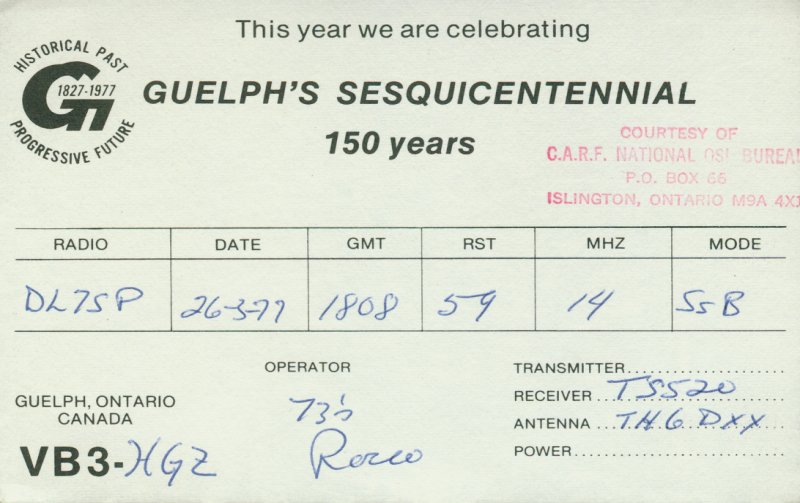 This year we are celebrating
HISTORICAL PAST
1827-1977
PROGRESSIVE FUTURE
GUELPH'S SESQUICENTENNIAL
150 years
COURTESY OF
C.A.R.F. NATIONAL QSL BUREAU
P.O. BOX 66
ISLINGTON, ONTARIO M9A 4X1
RADIO DATE GMT RST MHZ MODE
DL7SP 26-3-77 1808 59 14 SSB
OPERATOR
GUELPH, ONTARIO
CANADA
VB3-HGZ
73's
Rocco
TRANSMITTER
RECEIVER TS520
ANTENNA TH6DXX
POWER